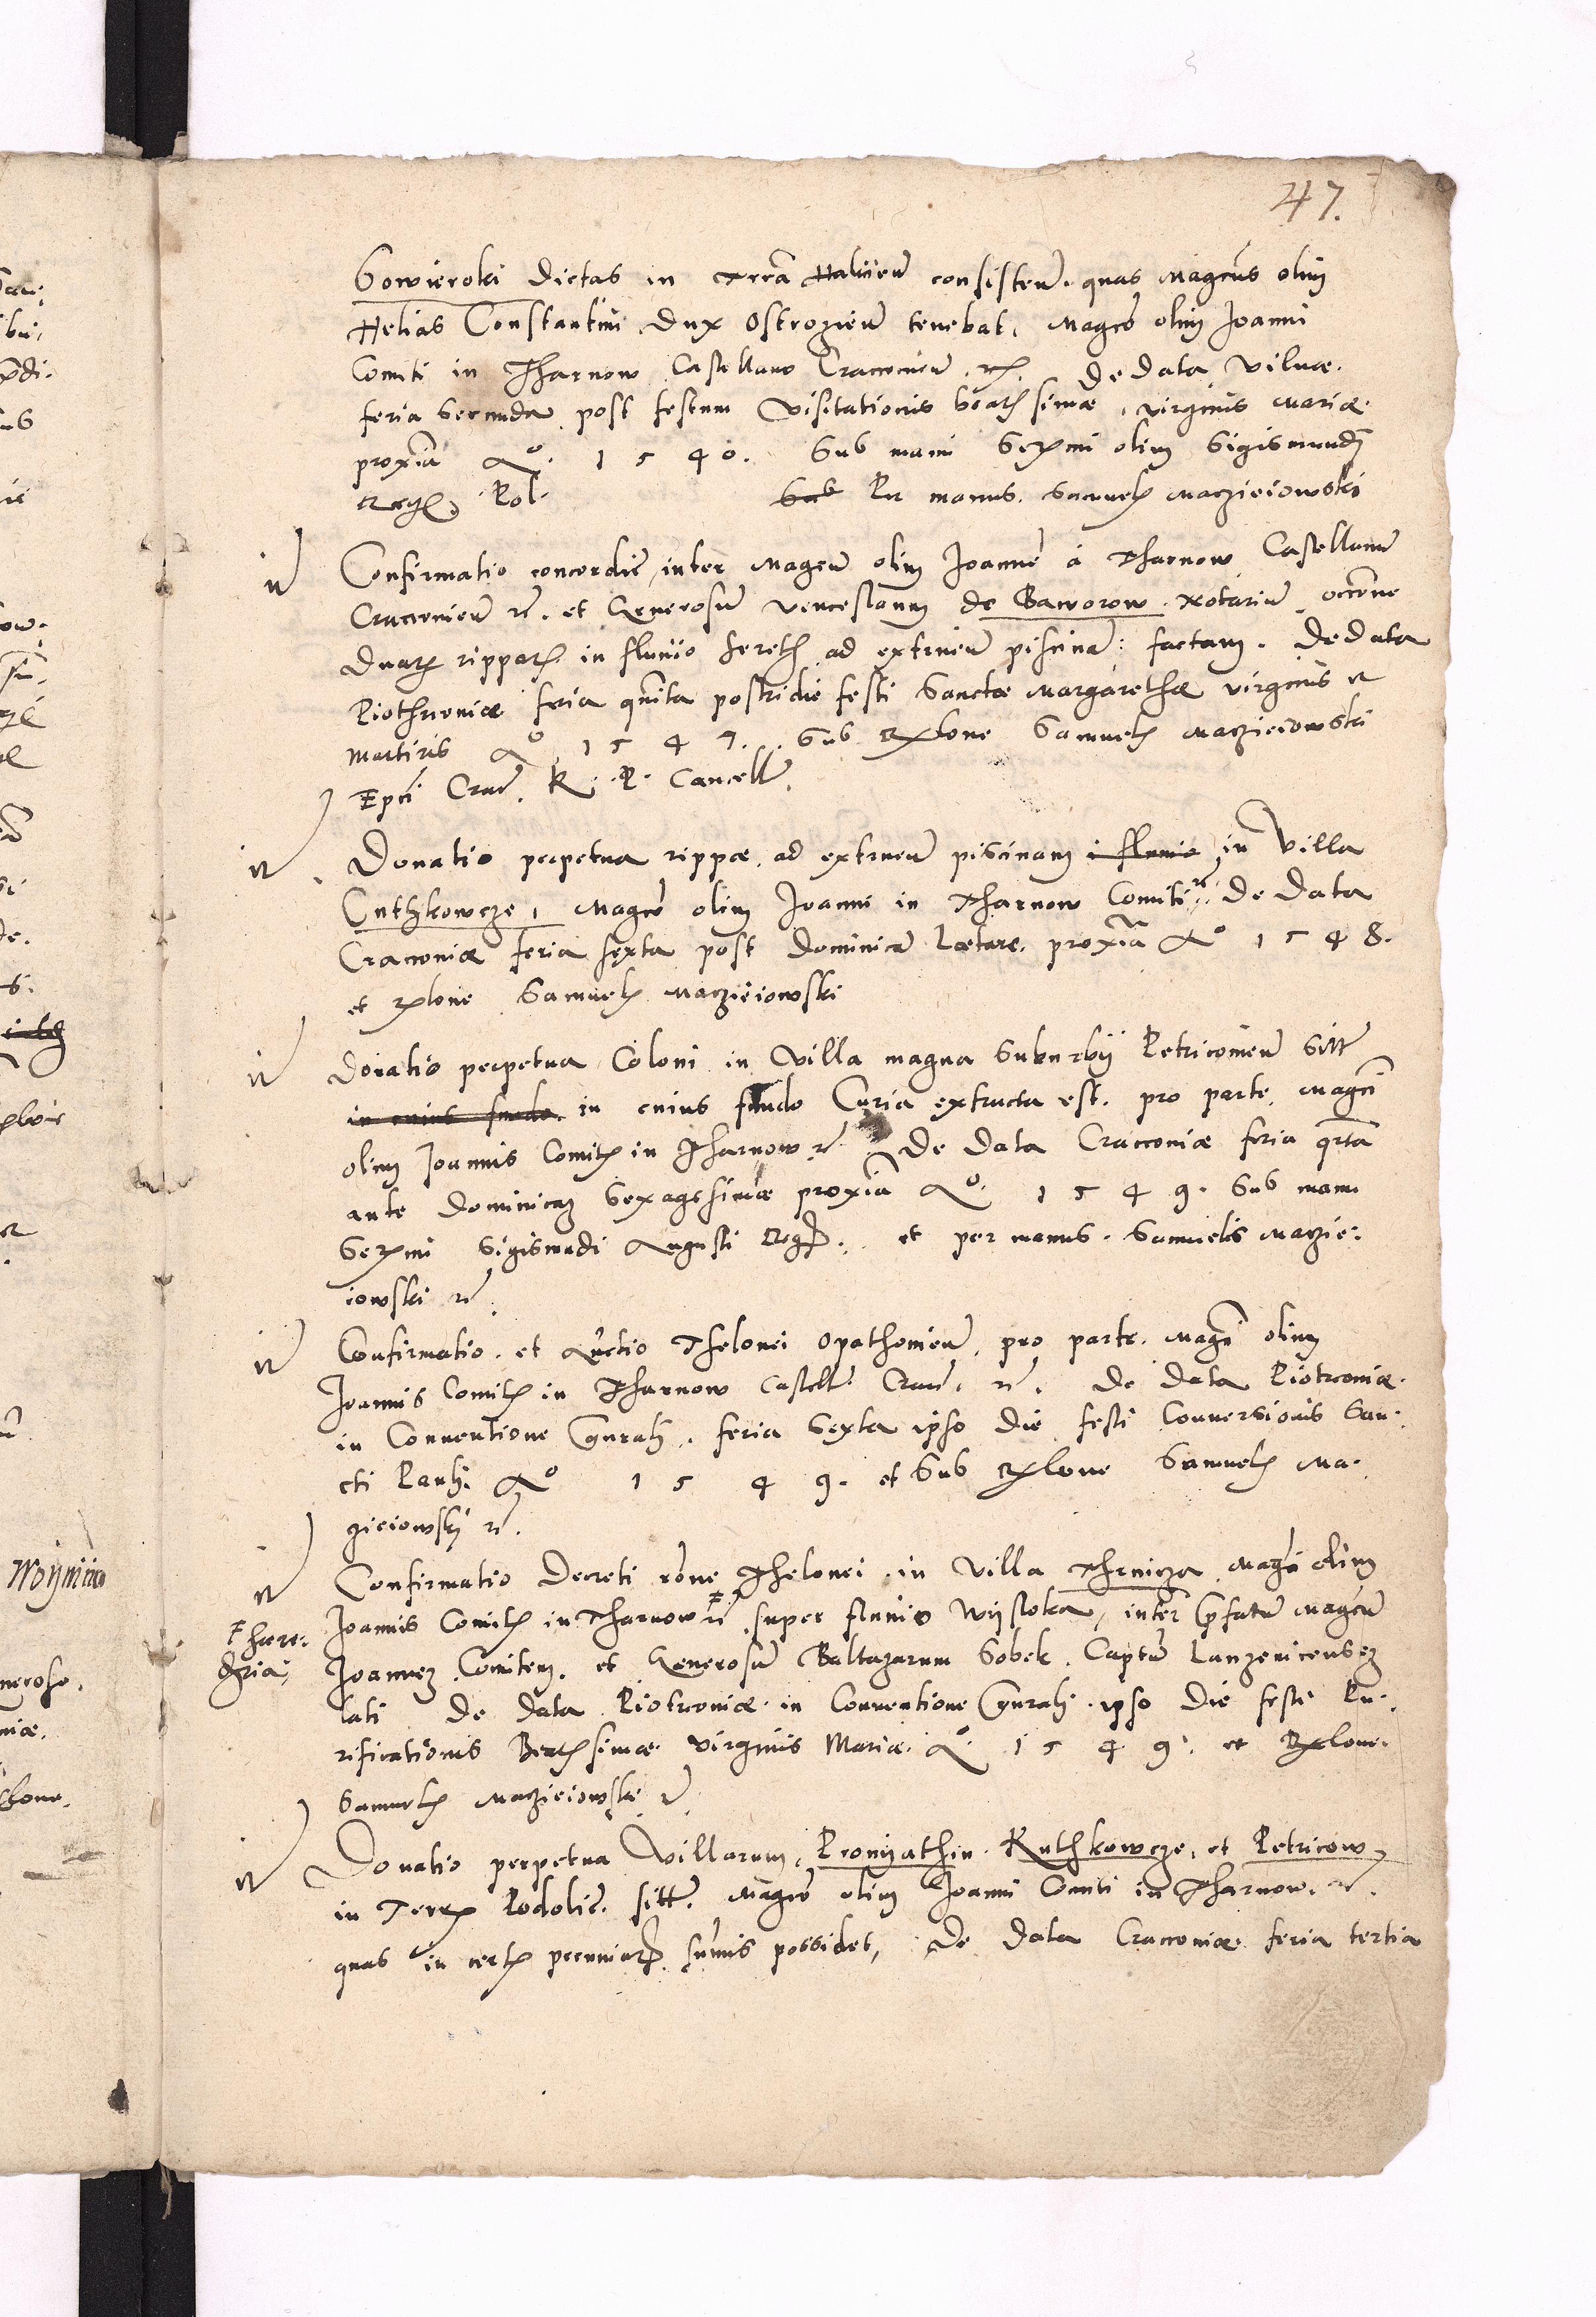 47.
Sowieroki dictas in Terra Halicien consisten. quas Magcus olim
Helias Constantini Dux Ostrogien tenebat, Magco olim Joanni
Comiti in Tharnow Castellano Cracovien etc. De data Vilnae.
feria secunda post festum Visitationis beatissimae virginis Mariae
proxia Ao. 1540. Sub manu Sermi olim Sigismundi
Regis Pol. Sub Per manus Samuelis Macziejowski
it Confirmatio concordie inter Magcu olim Joanne a Tharnow Castellanu
Cracovien etc. et Generosu Venceslaum de Baworow Notariu occone
duar ripparu in fluvio Sereth ad extruen piscina: factam. De data
Piothrcovie feria quinta postridie festi Sanctae Margarethae virginis et
Martiris Ao 1547. Sub Relone Samuelis Macziejowski
Epci Crac. R. P. Cancell.
it Donatio perpetua rippae ad extruen piscinam i fluvio in Villa
Cuthkowcze, Magco olim Joanni in Tharnow Comiti etc. De data
Cracoviae feria sexta post dominica Laetare proxia Ao 1548.
et Relone Samuelis Macziejowski
it Donatio perpetua Coloni in Villa magna Suburbij Petricovien sitt
in cuius fundo in cuius fundo Curia extructa est. pro parte Magci
olim Joannis Comitis in Tharnow etc. De data Cracoviae feria qrta
ante dominicam Sexagesimae proxia Ao. 1549. Sub manu
Sermi Sigismudi Augusti Regis. et per manus Samuelis Maczie-
iowski etc.
it Confirmatio et Thelonei Opathovien, pro parte Magci olim
Joannis Comitis in Tharnow Castell. Crac. etc. De data Piotrcoviae
in Conventione Gnrali. feria Sexta ipso die festi Conversionis San-
cti Pauli Ao 1549. et Sub Relone Samuelis Ma-
cziejowski etc.
it Confirmatio Decreti rone Thelonei in Villa Magci olim
Joannis Comitis in Tharnow etc super fluvio Wysloka, inter pfatu Magcu
Joannem Comitem et Generosu Baltazarum Sobek Captu
lati De data Piotrcoviae in Conventione Gnrali ipso die festi Pu-
rificationis Beatissimae virginis Mariae. Ao. 1549. et Relone
Samuelis Macziejowski etc
it Donatio perpetua Villarum, Proniathin Kuthkowcze, et Petricow
in Terris Podolie. sitt. Magco olim Joanni Comiti in Tharnow. etc.
quas in certis pecuniaru sumis possidet, De data Cracoviae feria tertia